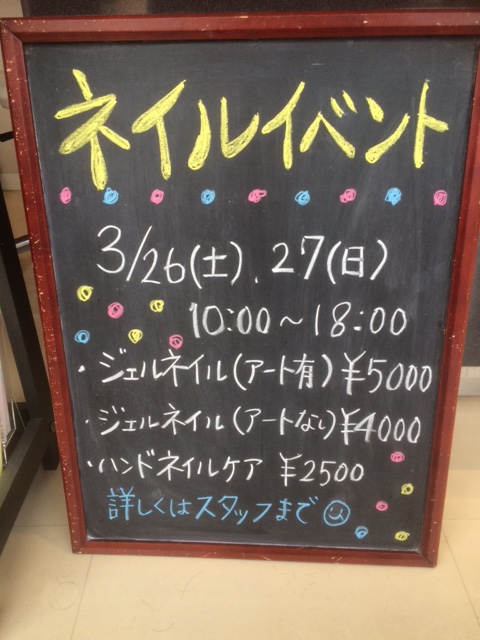 ネイルイベント
3/26(土)、27(日)
10:00～18:00
・ジェルネイル(アート有)¥5000
・ジェルネイル(アートなし)¥4000
・ハンドネイルケア ¥2500
詳しくはスタッフまで